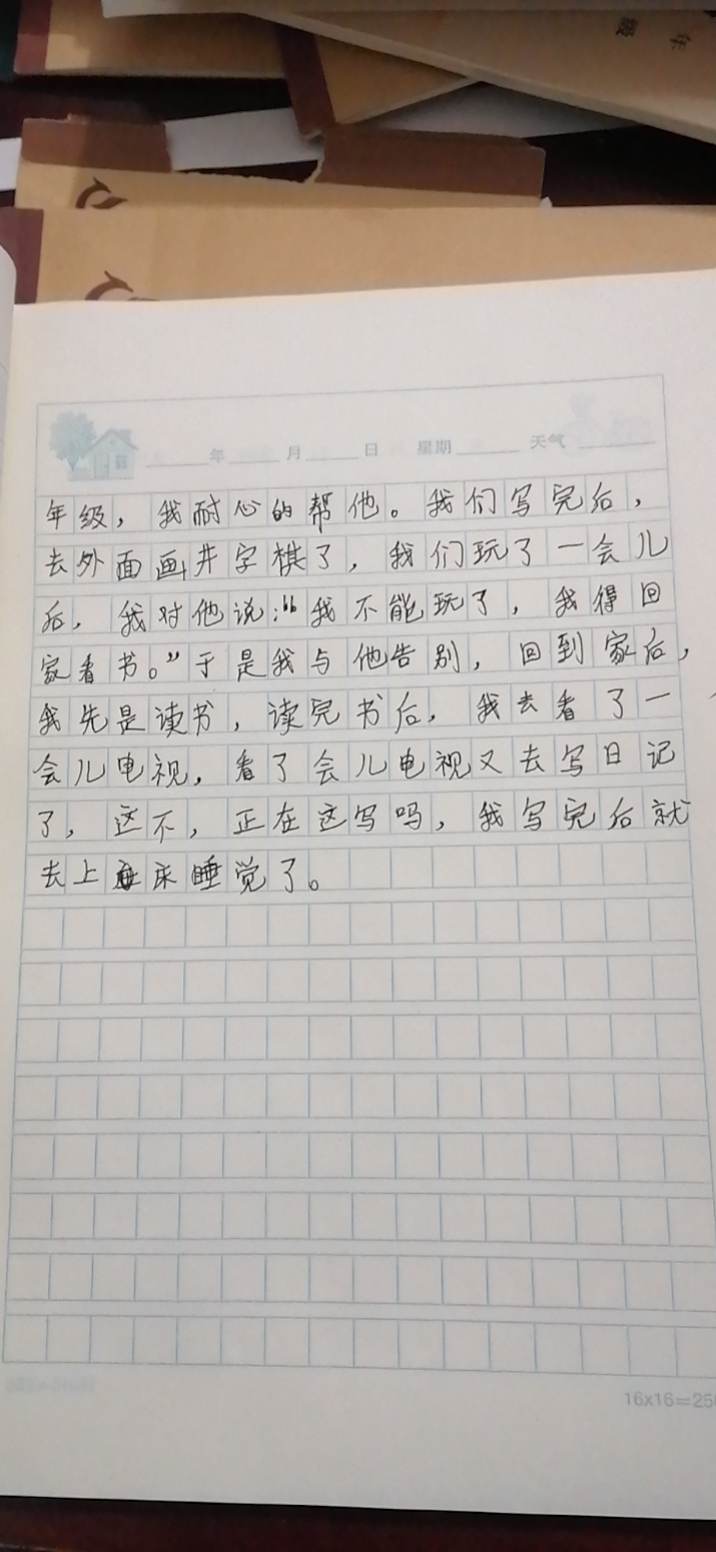 年级
年 月 日 星期 天气
年级，我耐心的帮他。我们写完后，
去外面画井字棋了，我们玩了一会儿
后，我对他说：“我不能玩了，我得回
家看书。”于是我与他告别，回到家后，
我先是读书，读完书后，我去看了一
会儿电视，看了会儿电视又去写日记
了，这不，正在这写吗，我写完后就
去上床睡觉了。
16x16=256